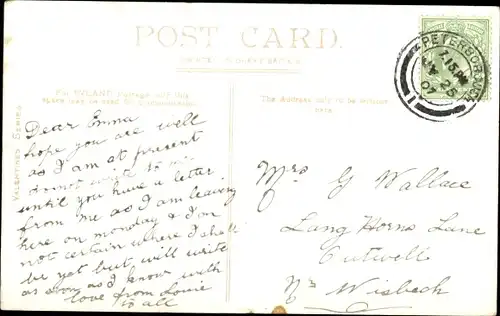 POST CARD.
For INLAND Postage only this
space may be used for Communication.
The Address only to be written
here.
VALENTINE'S SERIES
PETERBOROUGH
7.15 PM
25
07
1
Dear Emma
hope you are well
as I am at present
do not write to me
until you have a letter
from me as I am leaving
here on monday & I'm
not certain where I shall
be yet but will write
as soon as I know with
love from Louie
to all
Mrs G Wallace
Lang Horns Lane
Outwell
Nr Wisbech